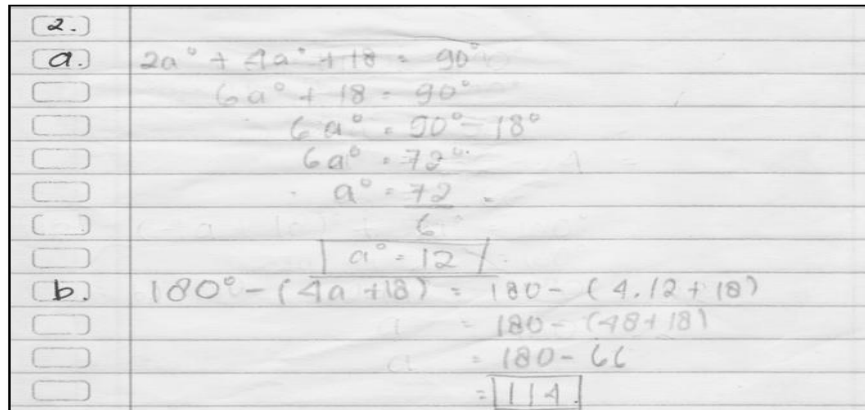 2.
a. 2a° + 4a° + 18 = 90°
6a° + 18 = 90°
6a° = 90° - 18°
6a° = 72°
a° = 72
6
a° = 12
b. 180° - (4a + 18) = 180 - (4.12 + 18)
= 180 - (48 + 18)
= 180 - 66
= 114.